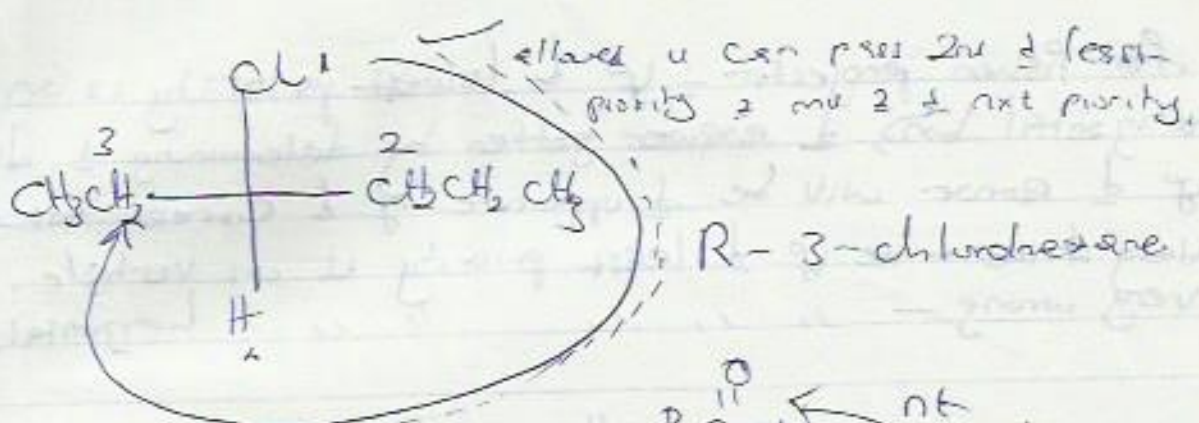 Cl 1
allowed u can pass 2nd & least
priority 2 mv 2 & nxt priority,
3 2
CH3CH2 CH2CH2CH3
R-3-chlorohexane
H
4
O
nt